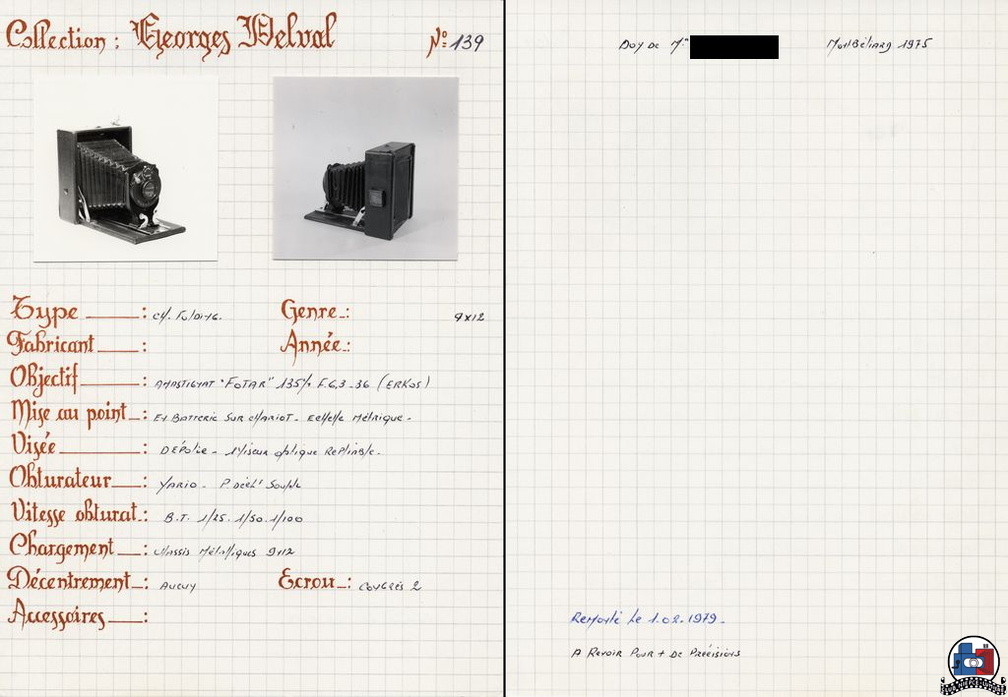 Collection : Georges Delval
N° 139
Type : CH. Folding.
Genre : 9x12
Fabricant :
Année :
Objectif : ANASTIGMAT "FOTAR" 135% F.6,3 - 36 (ERKOS)
Mise au point : En Batterie sur chariot - Echelle Métrique -
Visée : DÉPolie - Viseur optique Repliable -
Obturateur : VARIO - P. décl' Souple
Vitesse obturat : B.T. 1/25. 1/50. 1/100
Chargement : chassis Métalliques 9x12
Décentrement : Aucun
Ecrou : CONGRÈS 2
Accessoires :
Don de Mr
Montbéliard 1975
Remonté le 1.02.1979 -
A Revoir Pour + De Précisions